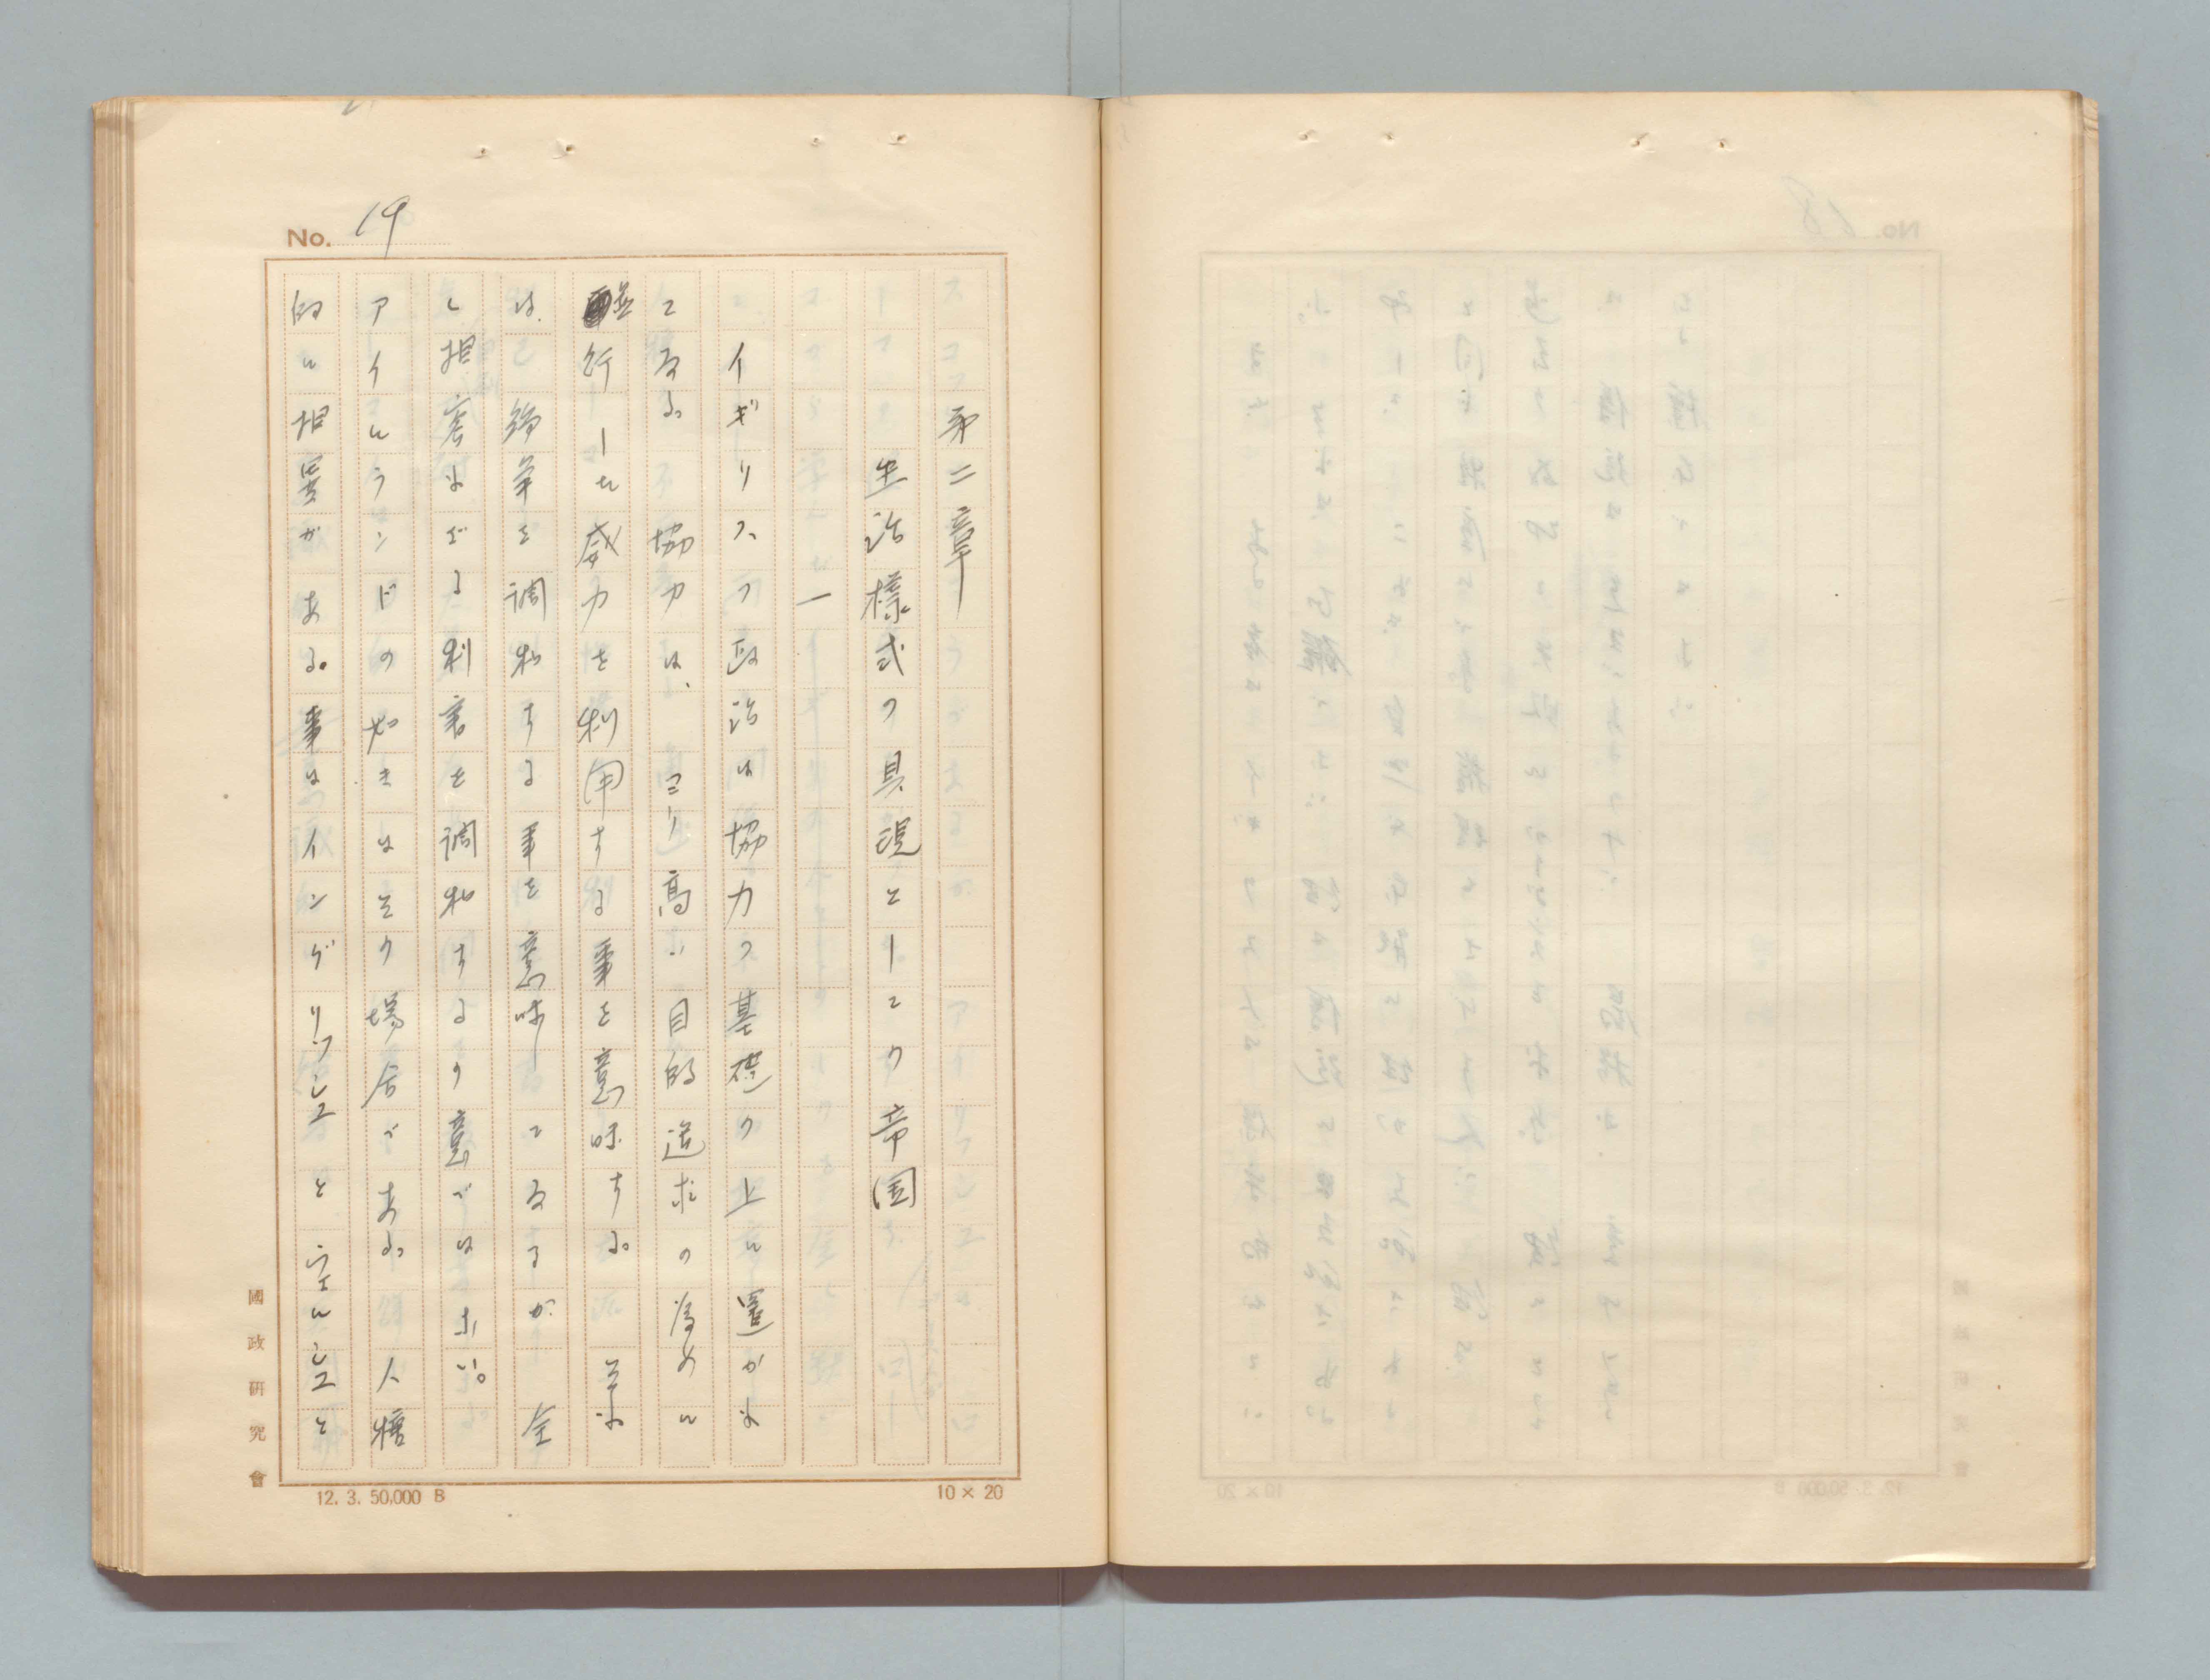 No. 19
第二章
生活様式の具現としての帝国
一
イギリスの政治は協力の基礎の上に置かれ
てゐる。協力は、ヨリ高い目的追求の為めに
並行した威力を利用する事を意味する。それ
は、紛争を調和する事を意味してゐるが 全
く相容れざる利害を調和するの意ではない。
アイルランドの如きはその場合である。人種
的に相異がある。事はイングリッシュとウェルシュと
國政研究會
12. 3. 50,000 B
10 × 20